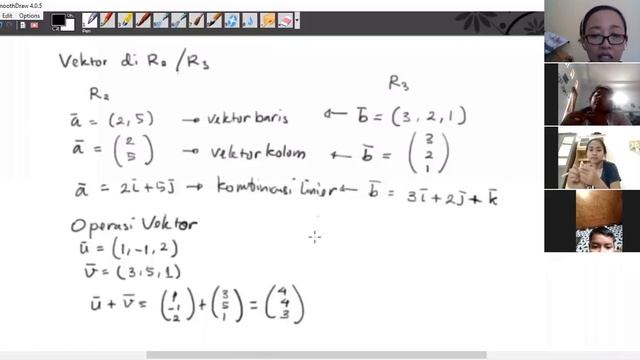 SmoothDraw 4.0.5
Edit Options
Pen
Vektor di R₂ / R₃
R₂ R₃
a̅ = (2, 5) → vektor baris ← b̅ = (3, 2, 1)
a̅ = (2 5) → vektor kolom ← b̅ = (3 2 1)
a̅ = 2i̅ + 5j̅ → kombinasi linier ← b̅ = 3i̅ + 2j̅ + k̅
Operasi Vektor
u̅ = (1, -1, 2)
v̅ = (3, 5, 1)
u̅ + v̅ = (1 -1 2) + (3 5 1) = (4 4 3)